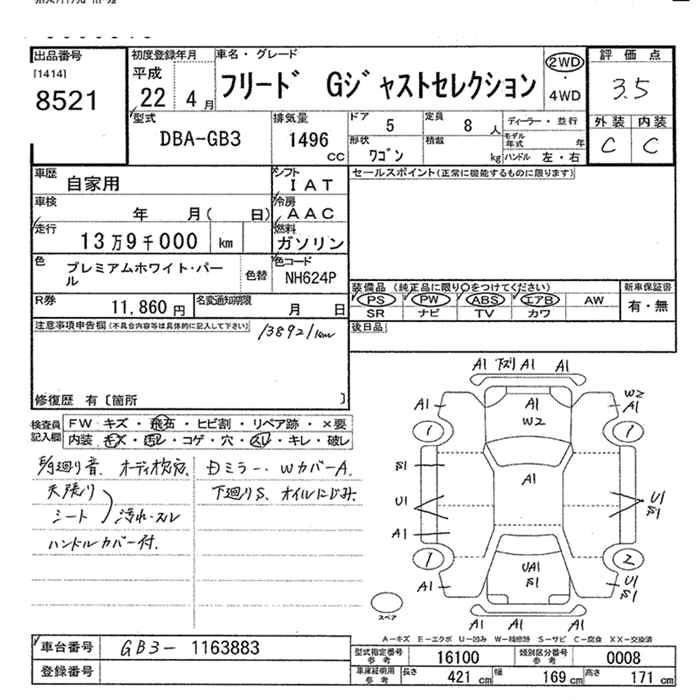 出品番号
[1414]
8521
初度登録年月
平成
22 4月
車名・グレード
フリード Gジャストセレクション
2WD
・
4WD
評価点
3.5
外装 内装
C C
型式
DBA-GB3
排気量
1496
CC
ドア 5
定員 8 人
ディーラー・並行
形状
ワゴン
積載
kg
モデル年式 年
ハンドル 左・右
車歴
自家用
シフト
IAT
車検
年 月( 日)
冷房
AAC
走行
13万9千000 km
燃料
ガソリン
色
プレミアムホワイト・パール
色替
色コード
NH624P
R券
11,860円
名変通知期限
月 日
セールスポイント(正常に機能するものに限ります)
装備品 (純正品に限り○をつけてください)
PS PW ABS エアB AW
SR ナビ TV カワ
新車保証書
有・無
後日品
注意事項申告欄(不具合内容等は具体的に記入して下さい)
138921km
修復歴 有〔箇所 〕
検査員
記入欄
FW キズ・飛石・ヒビ割・リペア跡・×要
内装 キズ・汚レ・コゲ・穴・スレ・キレ・破レ
天張り
シート
汚れ・スレ
ハンドルカバー付.
Dミラー・WカバーA.
下廻りS、オイルにじみ.
A1 下ズリ A1 A1
A1 A1 W2 A1
W2
1 1
S1 A1
U1 U1
S1
A1
1 2
A1 UA1 U1
S1 S1
スペア
A1 A1 A1
A-キズ E-エクボ U-凹み W-補修跡 S-サビ C-腐食 XX-交換済
車台番号 GB3- 1163883
登録番号
型式指定番号
参考
16100
類別区分番号
参考
0008
車庫証明用
参考
長さ 421 cm 幅 169 cm 高さ 171 cm